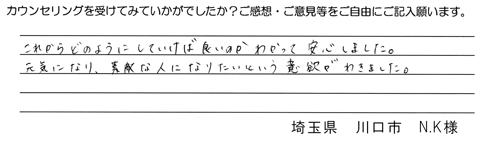 カウンセリングを受けてみていかがでしたか？ご感想・ご意見等をご自由にご記入願います。
これからどのようにしていけば良いのかわかって安心しました。
元気になり、素敵な人になりたいという意欲がわきました。
埼玉県　川口市　N.K様